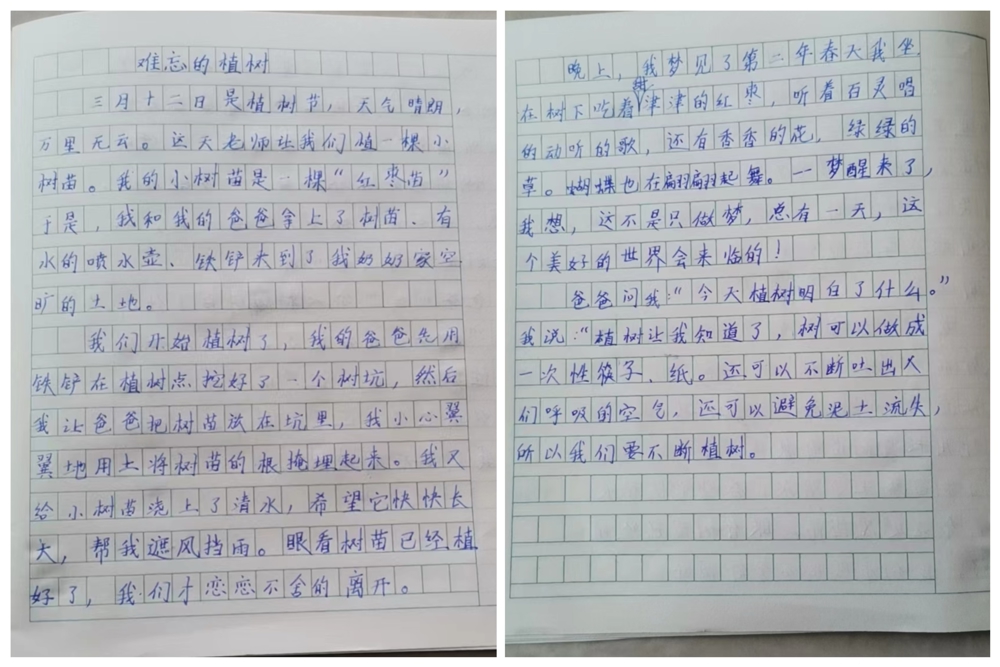 难忘的植树
三月十二日是植树节，天气晴朗，
万里无云。这天老师让我们植一棵小
树苗。我的小树苗是一棵“红枣苗”
于是，我和我的爸爸拿上了树苗、有
水的喷水壶、铁铲来到了我奶奶家空
旷的土地。
我们开始植树了，我的爸爸先用
铁铲在植树点挖好了一个树坑，然后
我让爸爸把树苗放在坑里，我小心翼
翼地用土将树苗的根掩埋起来。我又
给小树苗浇上了清水，希望它快快长
大，帮我遮风挡雨。眼看树苗已经植
好了，我们才恋恋不舍的离开。
晚上，我梦见了第二年春天我坐
在树下吃着甜津津的红枣，听着百灵唱
的动听的歌，还有香香的花，绿绿的
草。蝴蝶也在翩翩起舞。一梦醒来了，
我想，这不是只做梦，总有一天，这
个美好的世界会来临的！
爸爸问我：“今天植树明白了什么。”
我说：“植树让我知道了，树可以做成
一次性筷子、纸。还可以不断吐出人
们呼吸的空气，还可以避免泥土流失，
所以我们要不断植树。